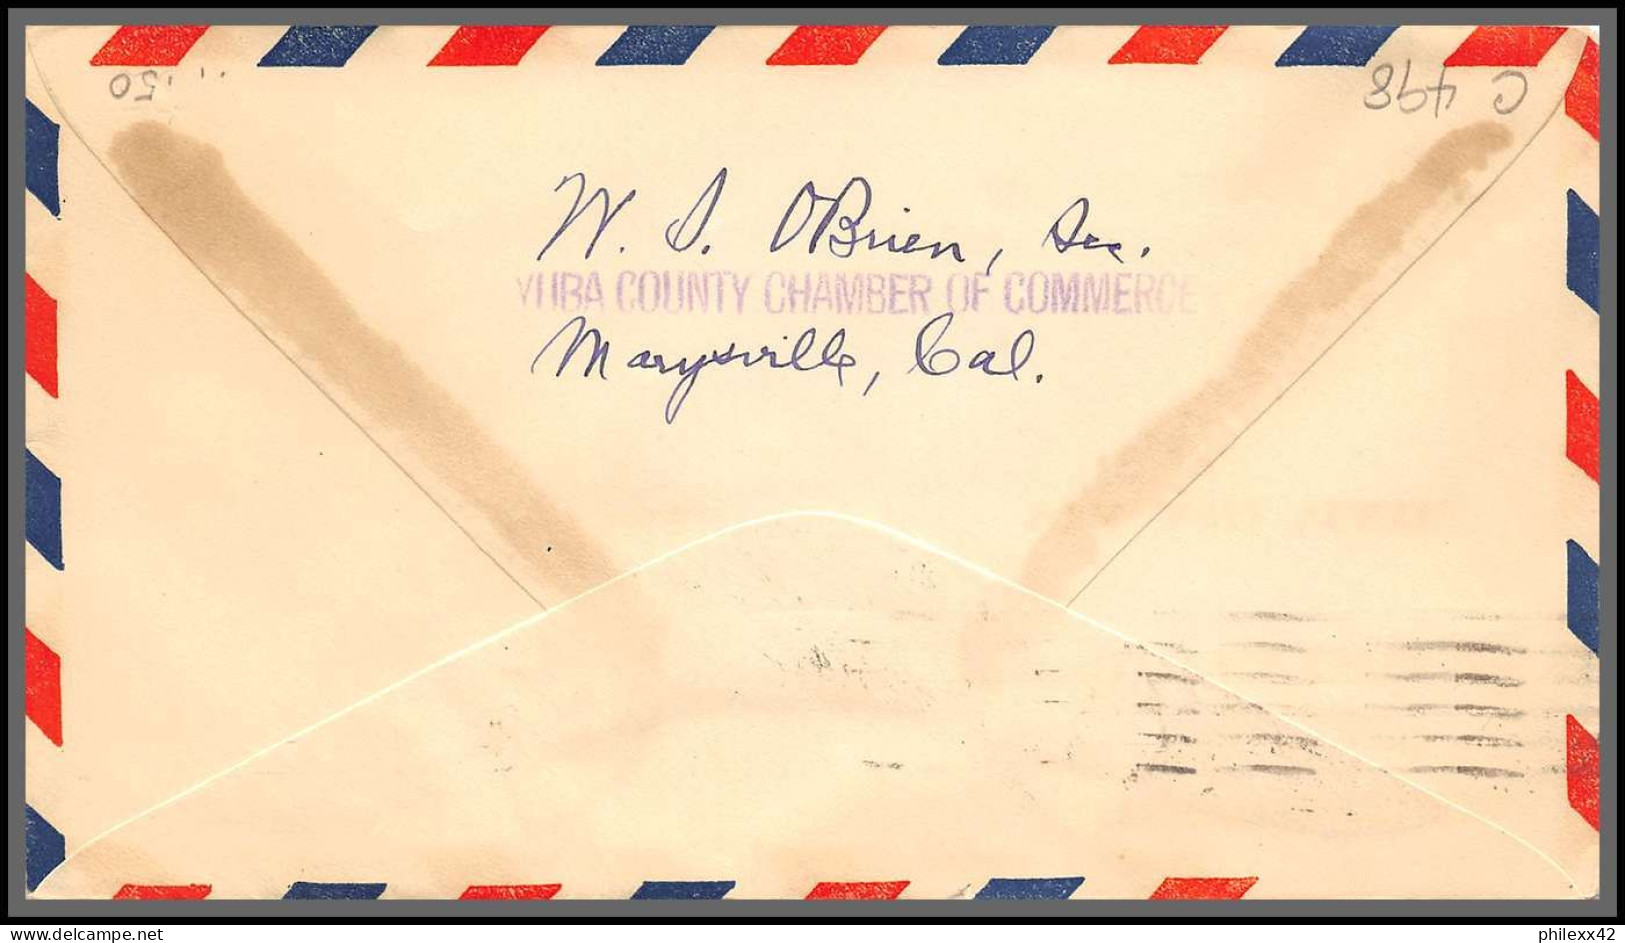 .50
C 498
W. S. O'Brien, Sec.
YUBA COUNTY CHAMBER OF COMMERCE
Marysville, Cal.
www.delcampe.net
philexx42